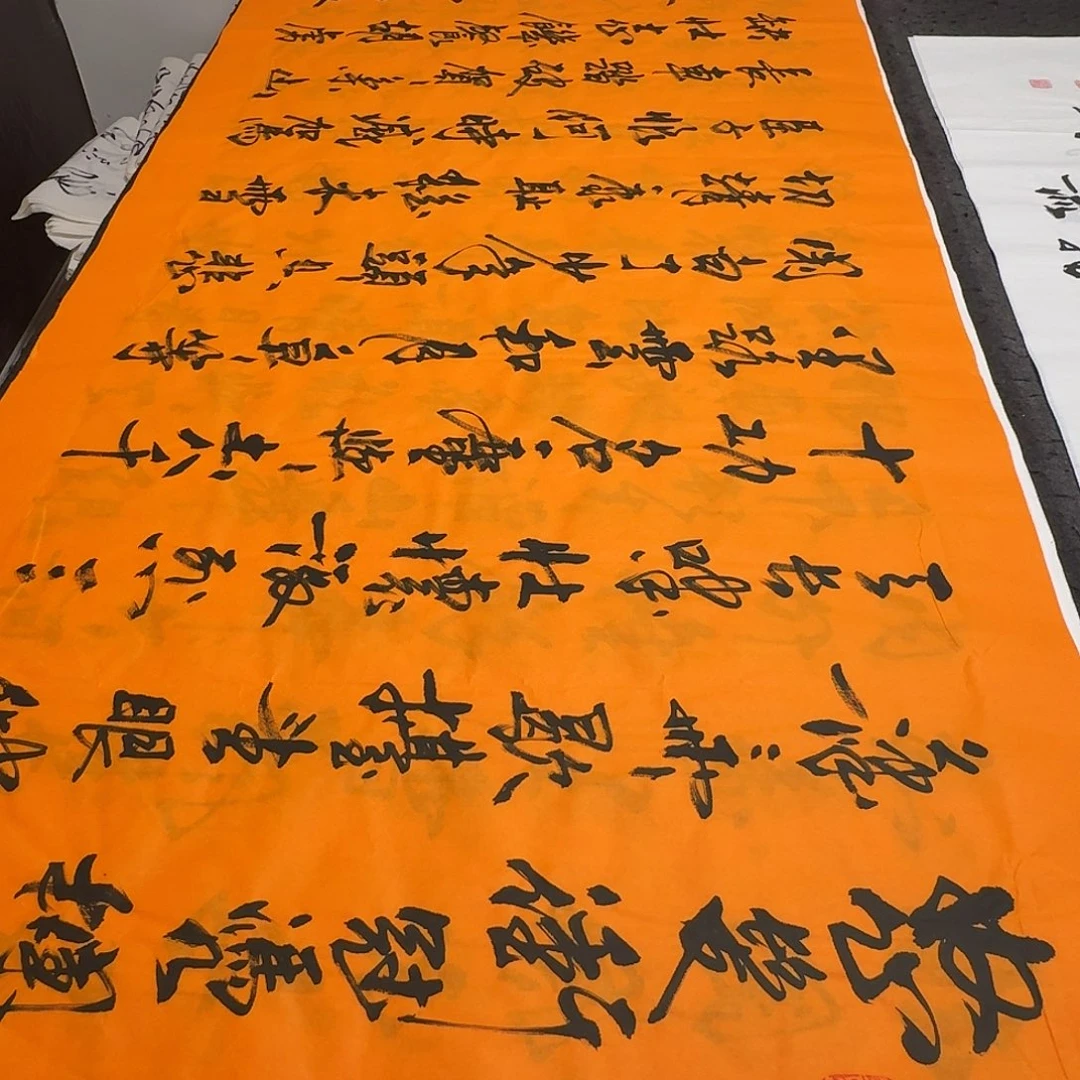 怒髮衝冠憑欄
處瀟瀟雨歇擡望眼仰
天長嘯壯懷激烈三
十功名塵與土八千
里路雲和月莫等
閑白了少年頭空悲
切靖康恥猶未雪
臣子恨何時滅駕
長車踏破賀蘭山
缺壯志飢餐胡虜